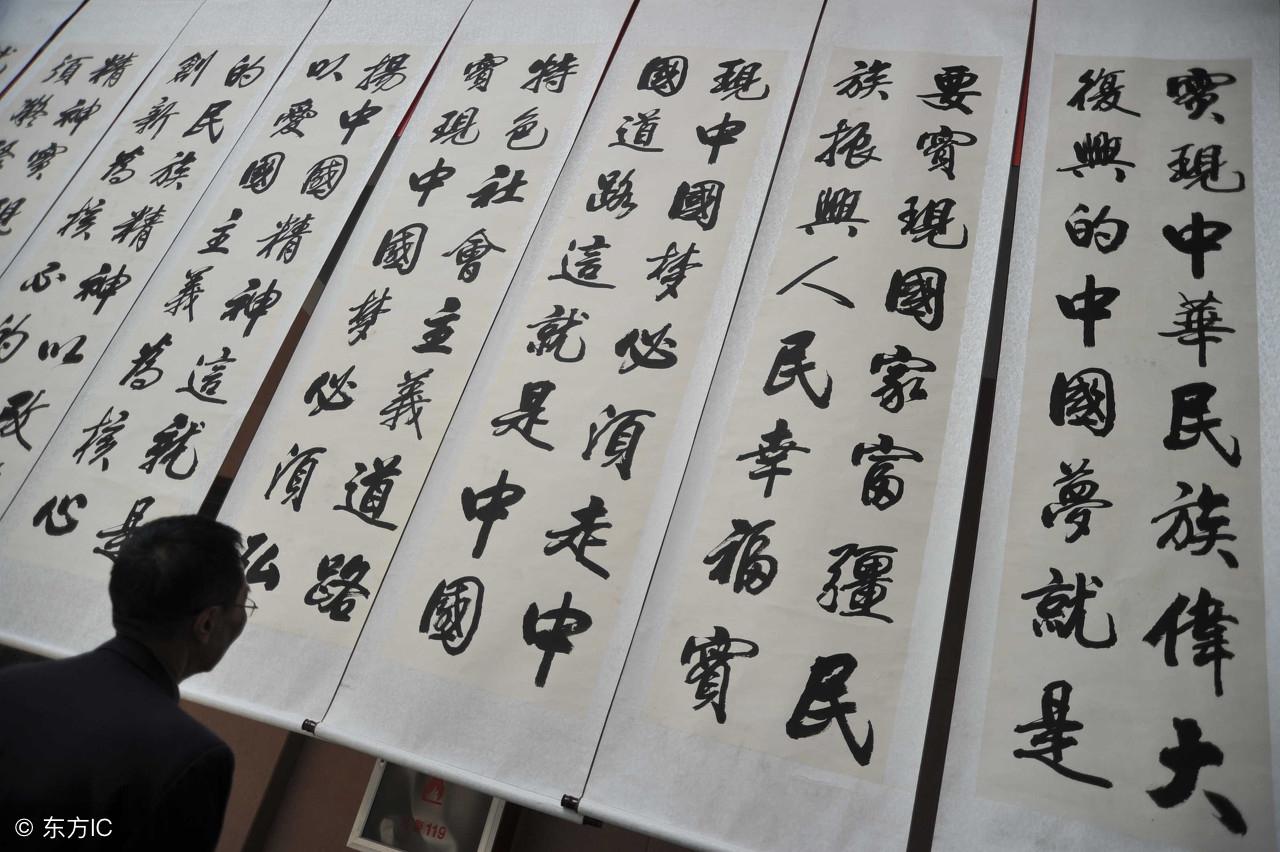 實現中華民族偉大
復興的中國夢就是
要實現國家富彊民
族振興人民幸福實
現中國梦必須走中
國道路這就是中國
特色社會主義道路
實現中國梦必須弘
揚中國精神這就是
以愛國主義為核心
的民族精神以改
創新為核心的
精神實現
須凝
119
© 东方IC